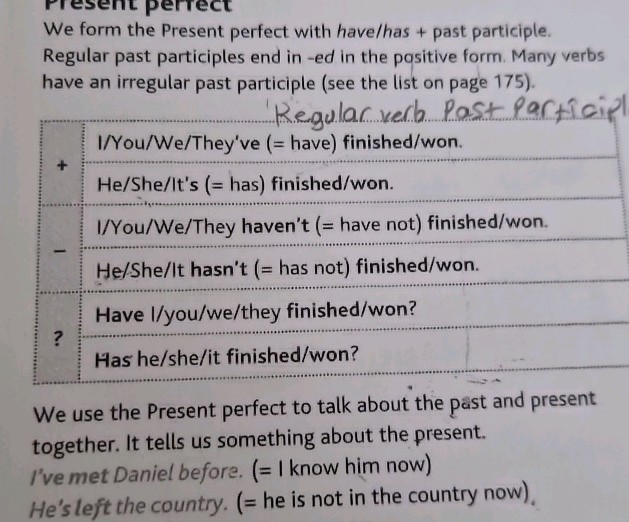 Present perfect
We form the Present perfect with have/has + past participle.
Regular past participles end in -ed in the positive form. Many verbs
have an irregular past participle (see the list on page 175).
Regular verb Past Participl
+
I/You/We/They've (= have) finished/won.
He/She/It's (= has) finished/won.
–
I/You/We/They haven't (= have not) finished/won.
He/She/It hasn't (= has not) finished/won.
?
Have I/you/we/they finished/won?
Has he/she/it finished/won?
We use the Present perfect to talk about the past and present
together. It tells us something about the present.
I've met Daniel before. (= I know him now)
He's left the country. (= he is not in the country now).